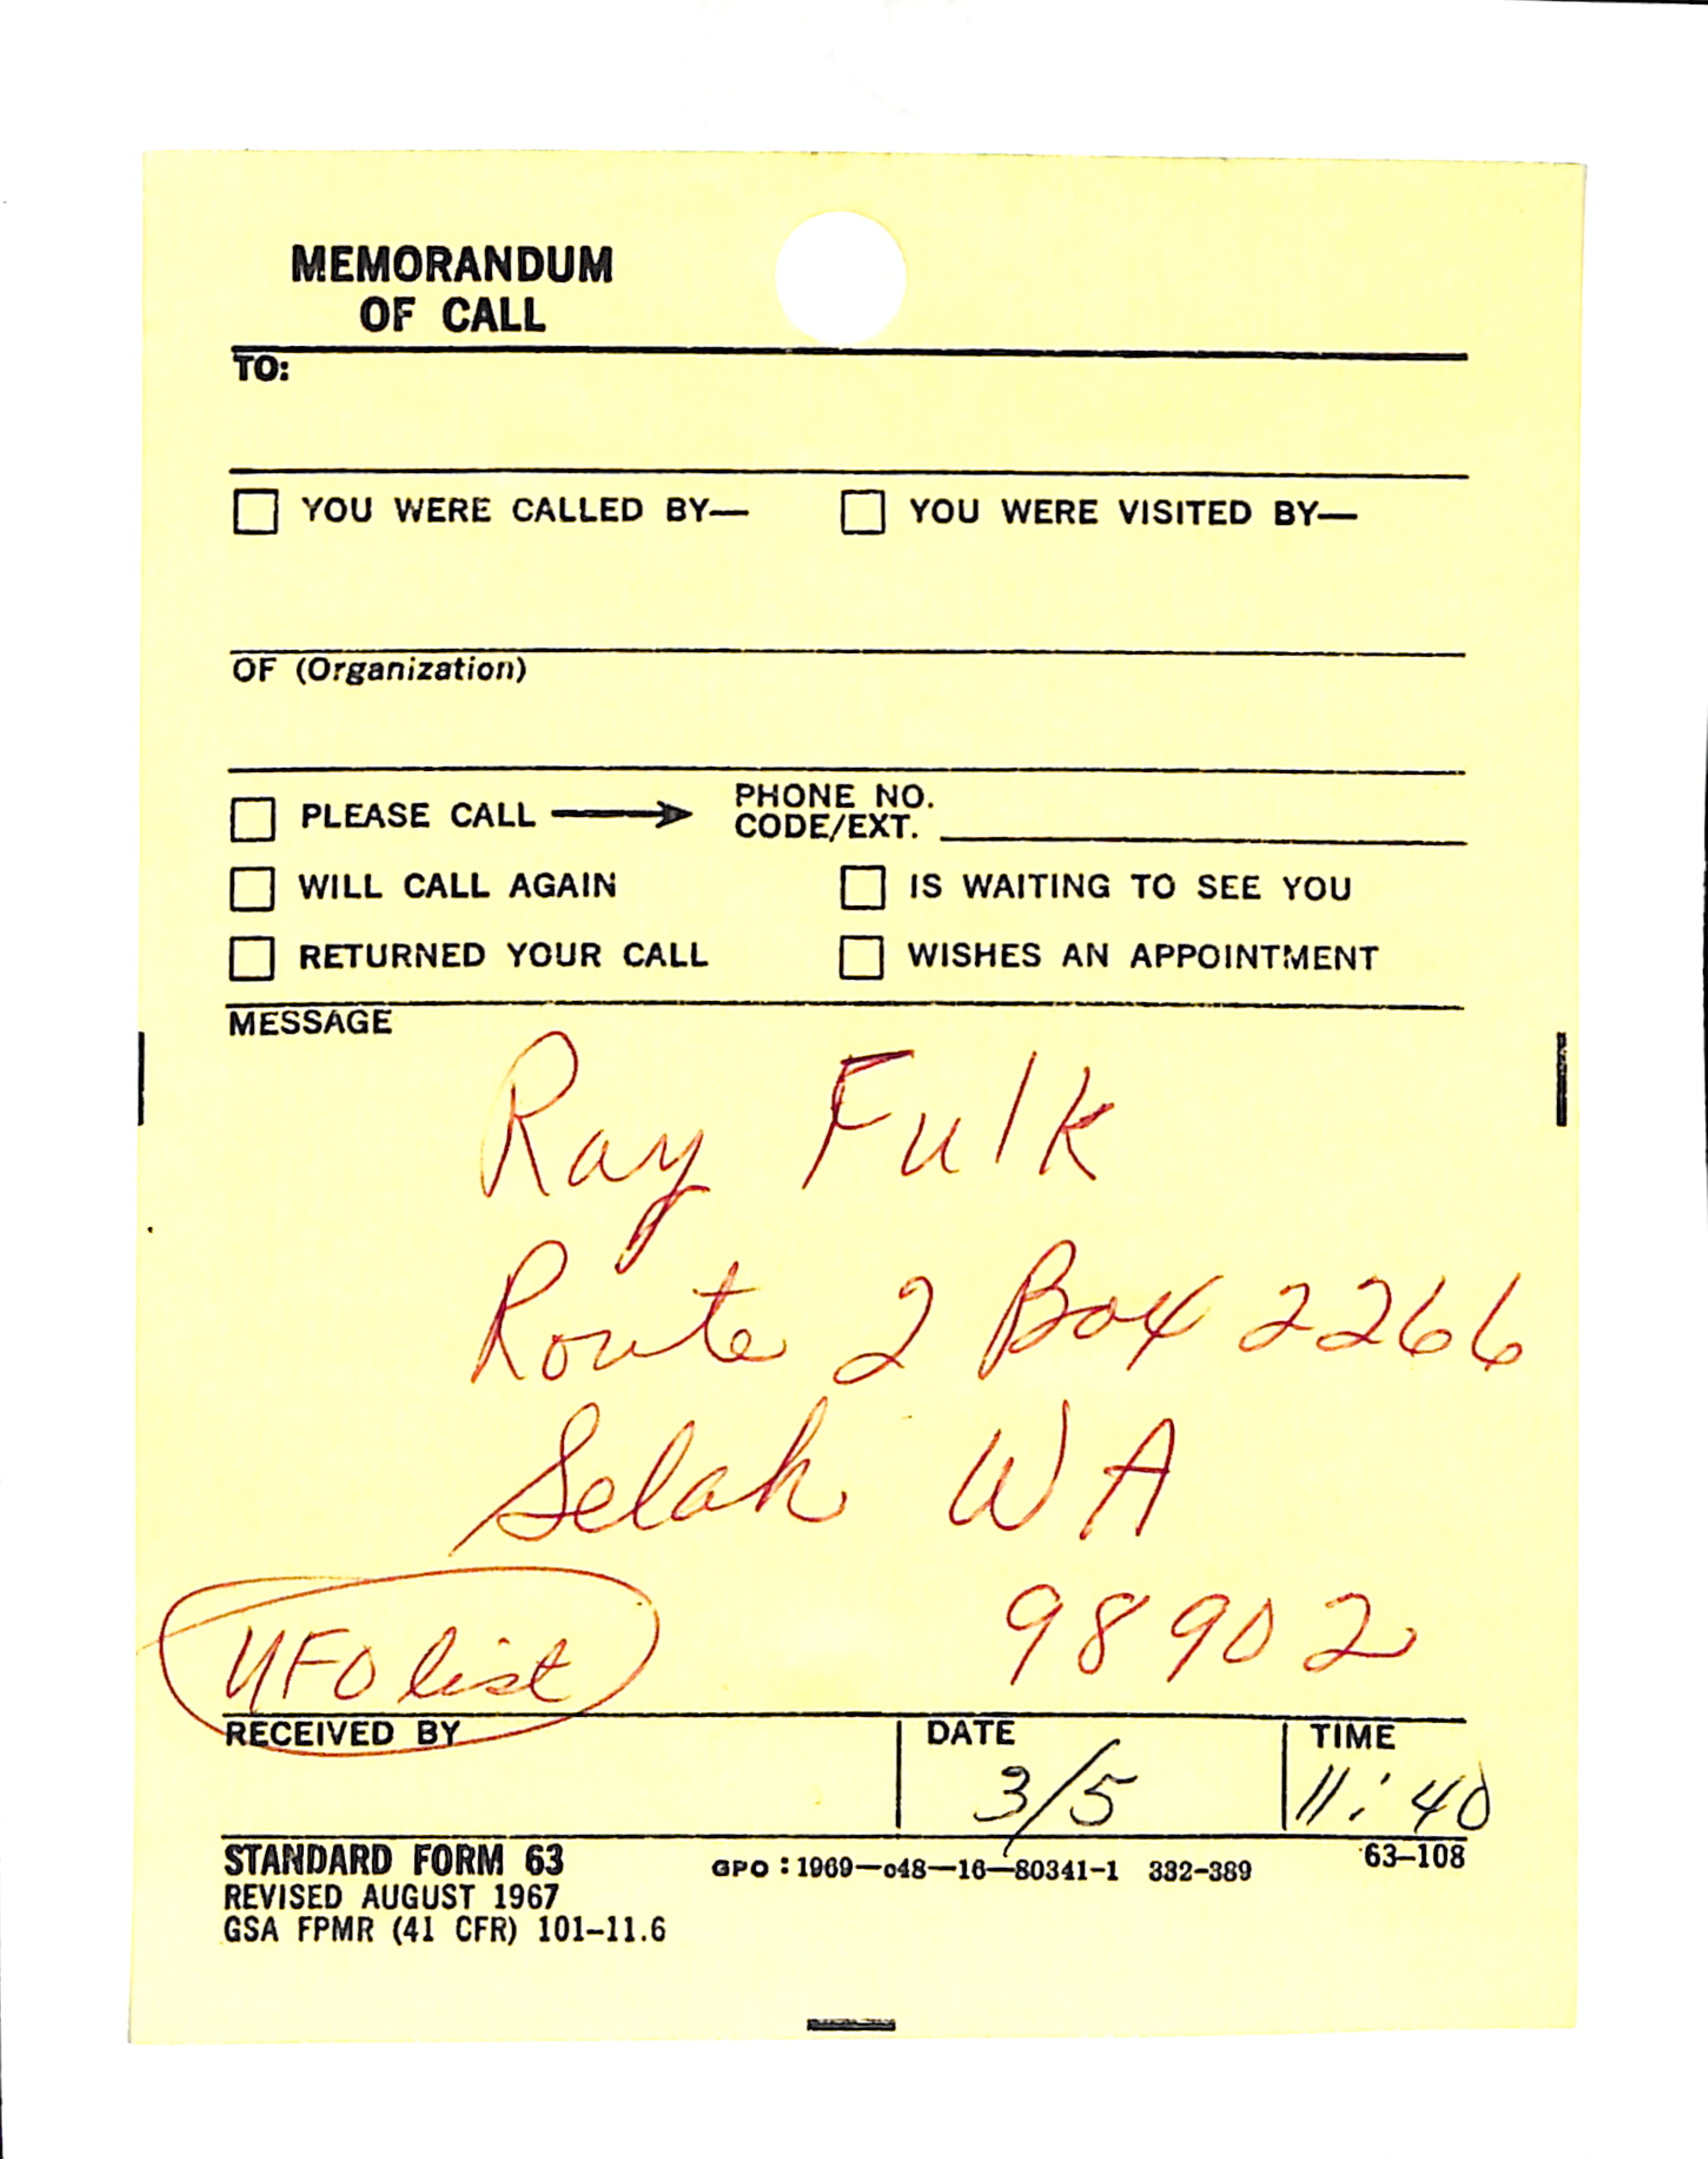 MEMORANDUM
OF CALL
TO:
YOU WERE CALLED BY— YOU WERE VISITED BY—
OF (Organization)
PLEASE CALL → PHONE NO.
CODE/EXT.
WILL CALL AGAIN IS WAITING TO SEE YOU
RETURNED YOUR CALL WISHES AN APPOINTMENT
MESSAGE
Ray Fulk
Route 2 Box 2266
Selah WA
98902
UFO list
RECEIVED BY DATE TIME
3/5 11:40
STANDARD FORM 63 GPO : 1969—o48—16—80341-1 332-389 63-108
REVISED AUGUST 1967
GSA FPMR (41 CFR) 101-11.6